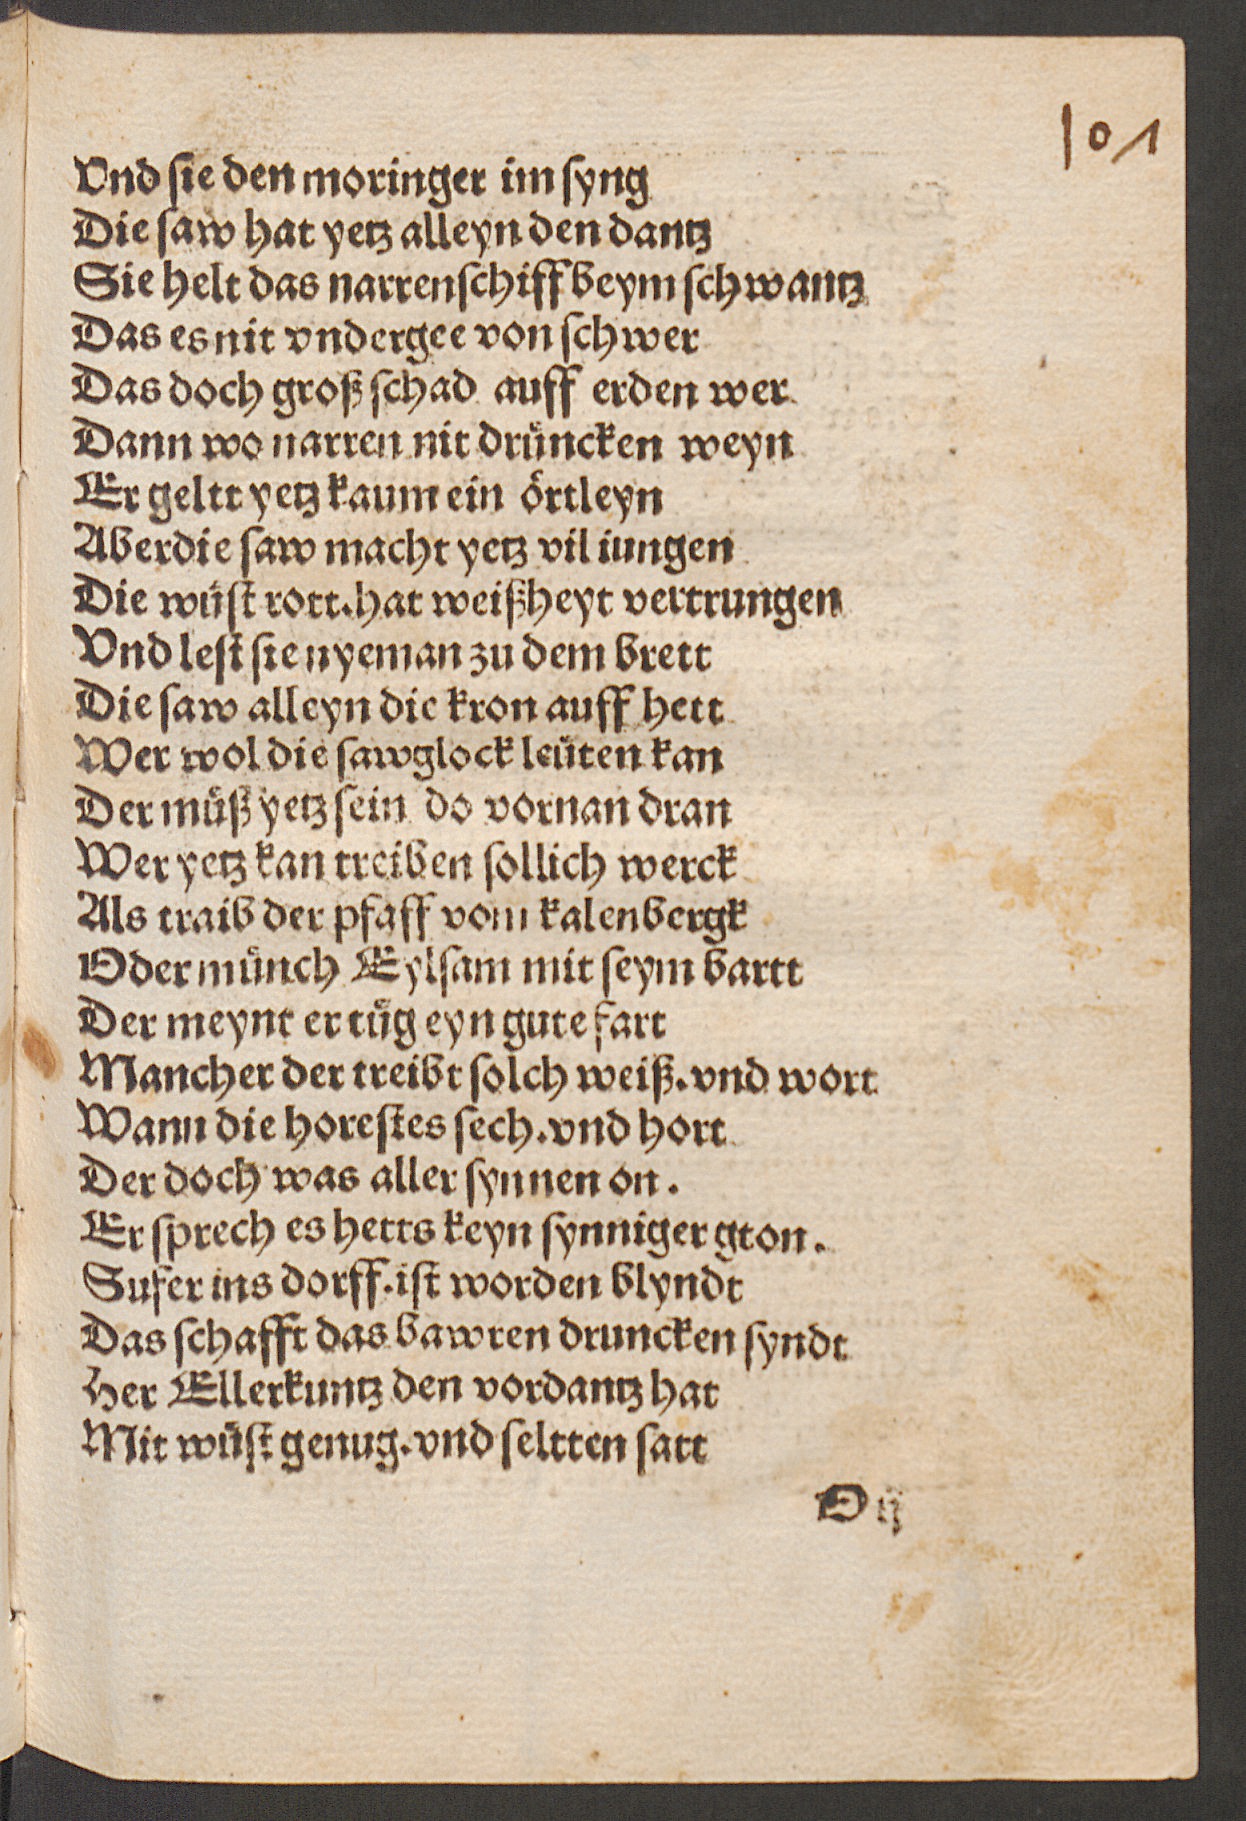 101
Vnd sie den moringer im syng
Die saw hat yetz alleyn den dantz
Sie helt das narrenschiff beym schwantz
Das es nit vndergee von schwer
Das doch groß schad auff erden wer
Dann wo narren nit drüncken weyn
Er geltt yetz kaum ein örtleyn
Aber die saw macht yetz vil iungen
Die wüst rott. hat weißheyt vertrungen
Vnd lest sie nyeman zu dem brett
Die saw alleyn die kron auff hett
Wer wol die sawglock leüten kan
Der müß yetz sein do vornan dran
Wer yetz kan treiben sollich werck
Als traib der pfaff vom kalenbergk
Oder münch Eylsam mit seym bartt
Der meynt er tüg eyn gute fart
Mancher der treibt solch weiß. vnd wort
Wann die horestes sech. vnd hort
Der doch was aller synnen on.
Er sprech es hetts keyn synniger gton.
Sufer ins dorff. ist worden blyndt
Das schafft das bawren druncken syndt
Her Ellerkuntz den vordantz hat
Mit wüst genug. vnd seltten satt
O ij